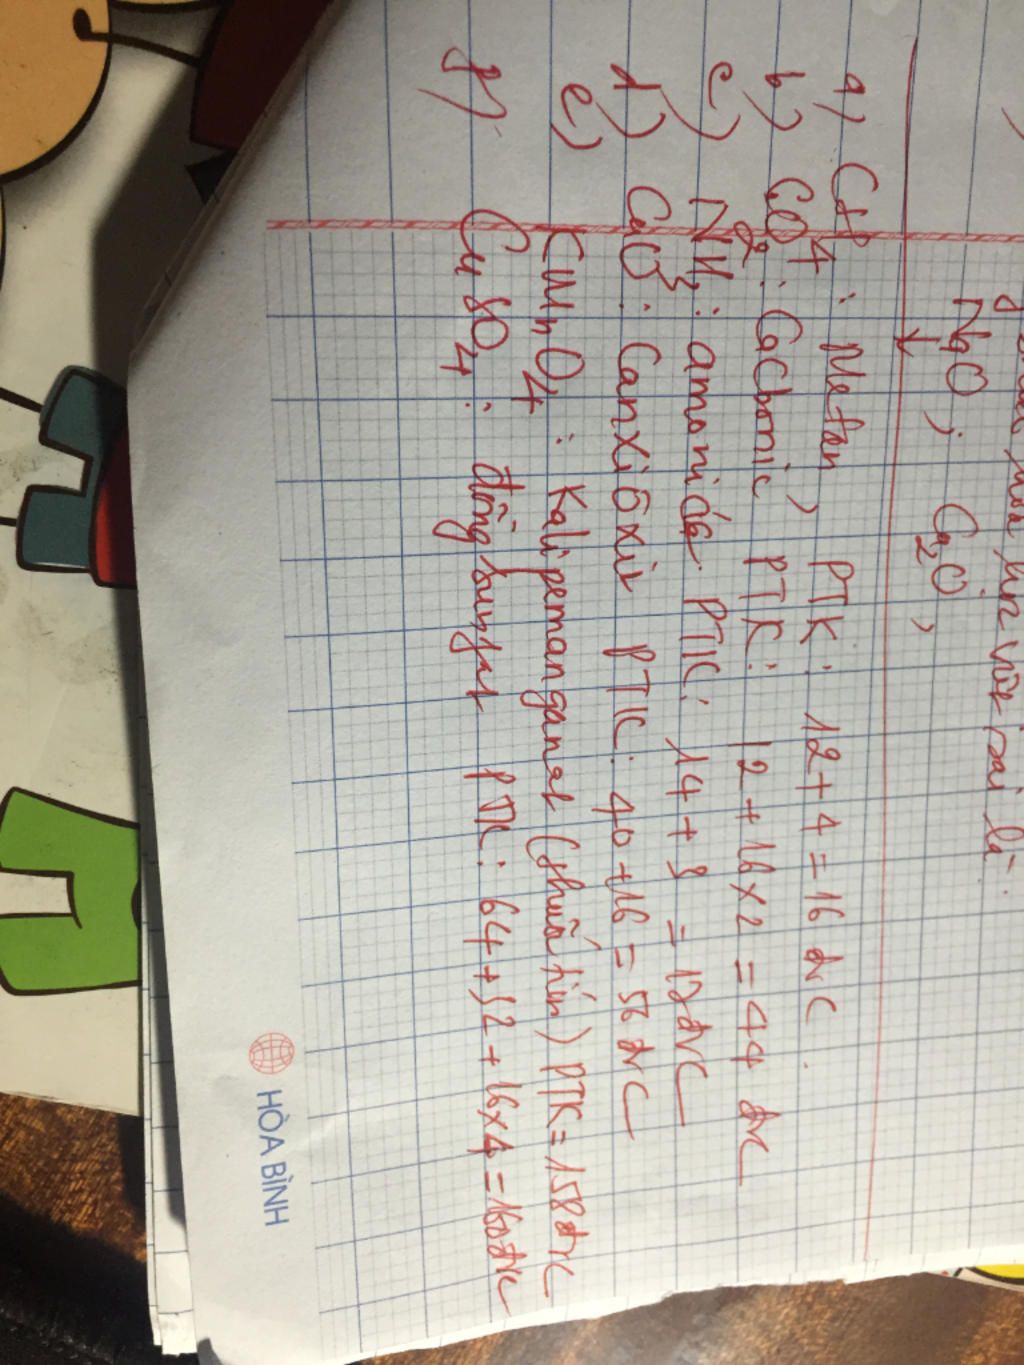 NaO ; Ca2O ,
a) CH4 : Metan , PTK : 12 + 4 = 16 đvC .
b) CO2 : Cacbonic PTK : 12 + 16 x 2 = 44 đvC
c) NH3 : amoniac PTK : 14 + 3 = 17 đvC
d) CaO : Canxi ôxit PTK : 40 + 16 = 56 đvC
e) KMnO4 : Kali pemanganat (thuốc tím) PTK = 158 đvC
g) CuSO4 : đồng sunfat PTK : 64 + 32 + 16 x 4 = 160 đvC
HÒA BÌNH